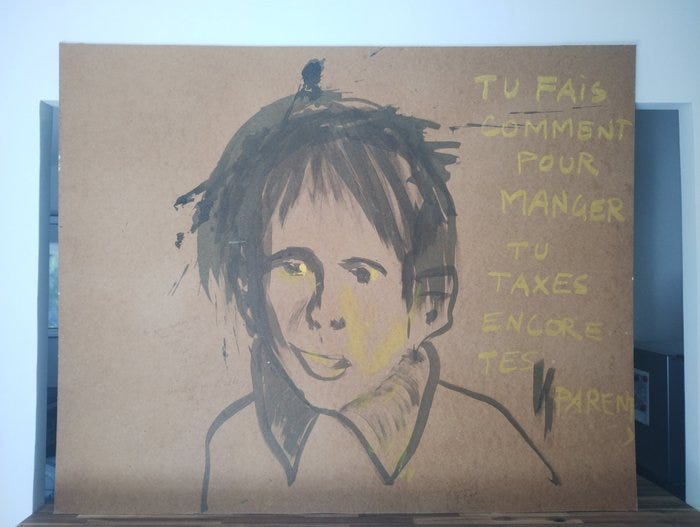 TU FAIS
COMMENT
POUR
MANGER
TU
TAXES
ENCORE
TES
PARENS